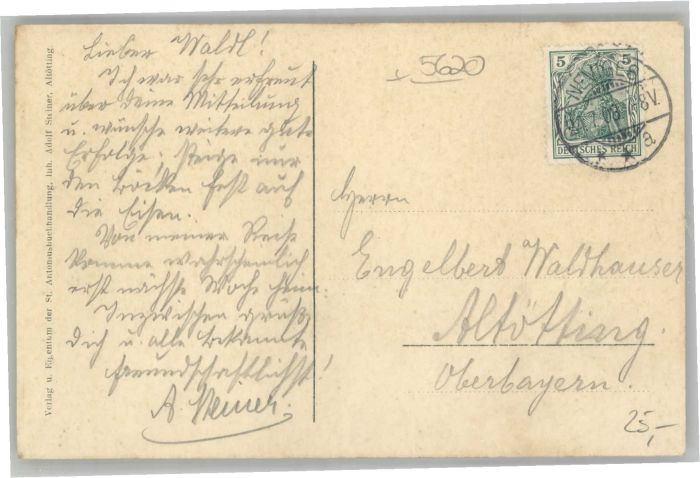 Verlag u. Eigentum der St. Antoniusbuchhandlung, Inh. Adolf Steiner, Altötting.
Lieber Waldl!
Ich war sehr erfreut
über deine Mitteilung
u. wünsche weitere gute
Erfolge; steige nur
den Böcken fest auf
die Eisen.
Von meiner Reise
komme wahrscheinlich
erst nächste Woche heim.
Inzwischen grüßt
dich u. alle Bekannte
freundschaftlichst!
A. Steiner.
5620
5 5
DEUTSCHES REICH
8V.
* * a
Herrn
Engelbert Waldhauser
Altötting.
Oberbayern.
25,-